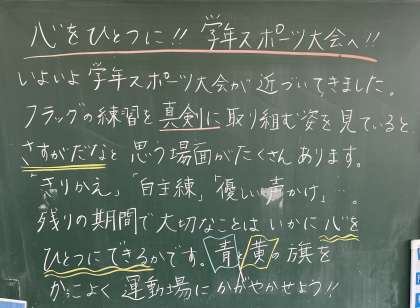 心をひとつに!! 学年スポーツ大会へ!!
いよいよ学年スポーツ大会が近づいてきました。
フラッグの練習を真剣に取り組む姿を見ていると
さすがだなと思う場面がたくさんあります。
「きりかえ」「自主練」「優しい声かけ」…。
残りの期間で大切なことはいかに心を
ひとつにできるかです。青と黄の旗を
かっこよく運動場にかがやかせよう!!